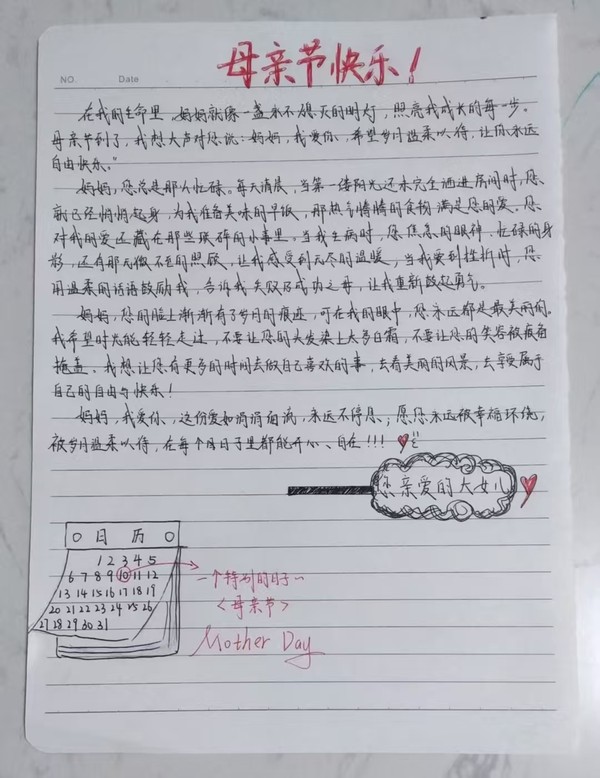 母亲节快乐！
NO.
Date
在我的生命里，妈妈就像一盏永不熄灭的明灯，照亮我成长的每一步。
母亲节到了，我想大声对您说：妈妈，我爱你，希望岁月温柔以待，让你永远
自由快乐。"
妈妈，您总是那么忙碌。每天清晨，当第一缕阳光还未完全洒进房间时，您
就已经悄悄起身，为我准备美味的早饭，那热气腾腾的食物满是您的爱。您
对我的爱还藏在那些琐碎的小事里，当我生病时，您焦急的眼神、忙碌的身
影，还有那无微不至的照顾，让我感受到无尽的温暖，当我受到挫折时，您
用温柔的话语鼓励我，告诉我失败乃成功之母，让我重新鼓起勇气。
妈妈，您的脸上渐渐有了岁月的痕迹，可在我的眼中，您永远都是最美丽的。
我希望时光能轻轻走过，不要让您的头发染上太多白霜，不要让您的笑容被疲惫
掩盖。我想让您有更多的时间去做自己喜欢的事，去看美丽的风景，去享受属于
自己的自由与快乐！
妈妈，我爱你，这份爱如涓涓细流，永远不停息；愿您永远被幸福环绕，
被岁月温柔以待，在每个日子里都能开心、自在！！！
您亲爱的大女儿
日 历
1 2 3 4 5
6 7 8 9 10 11 12
13 14 15 16 17 18 19
20 21 22 23 24 25 26
27 28 29 30 31
一个特别的日子~
<母亲节>
Mother Day